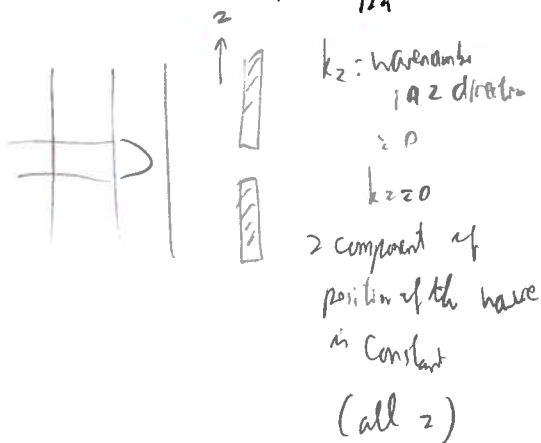 z
k_z : wavenumber
in z direction
: 0
k_z = 0
z component of
position of the wave
is constant
(all z)